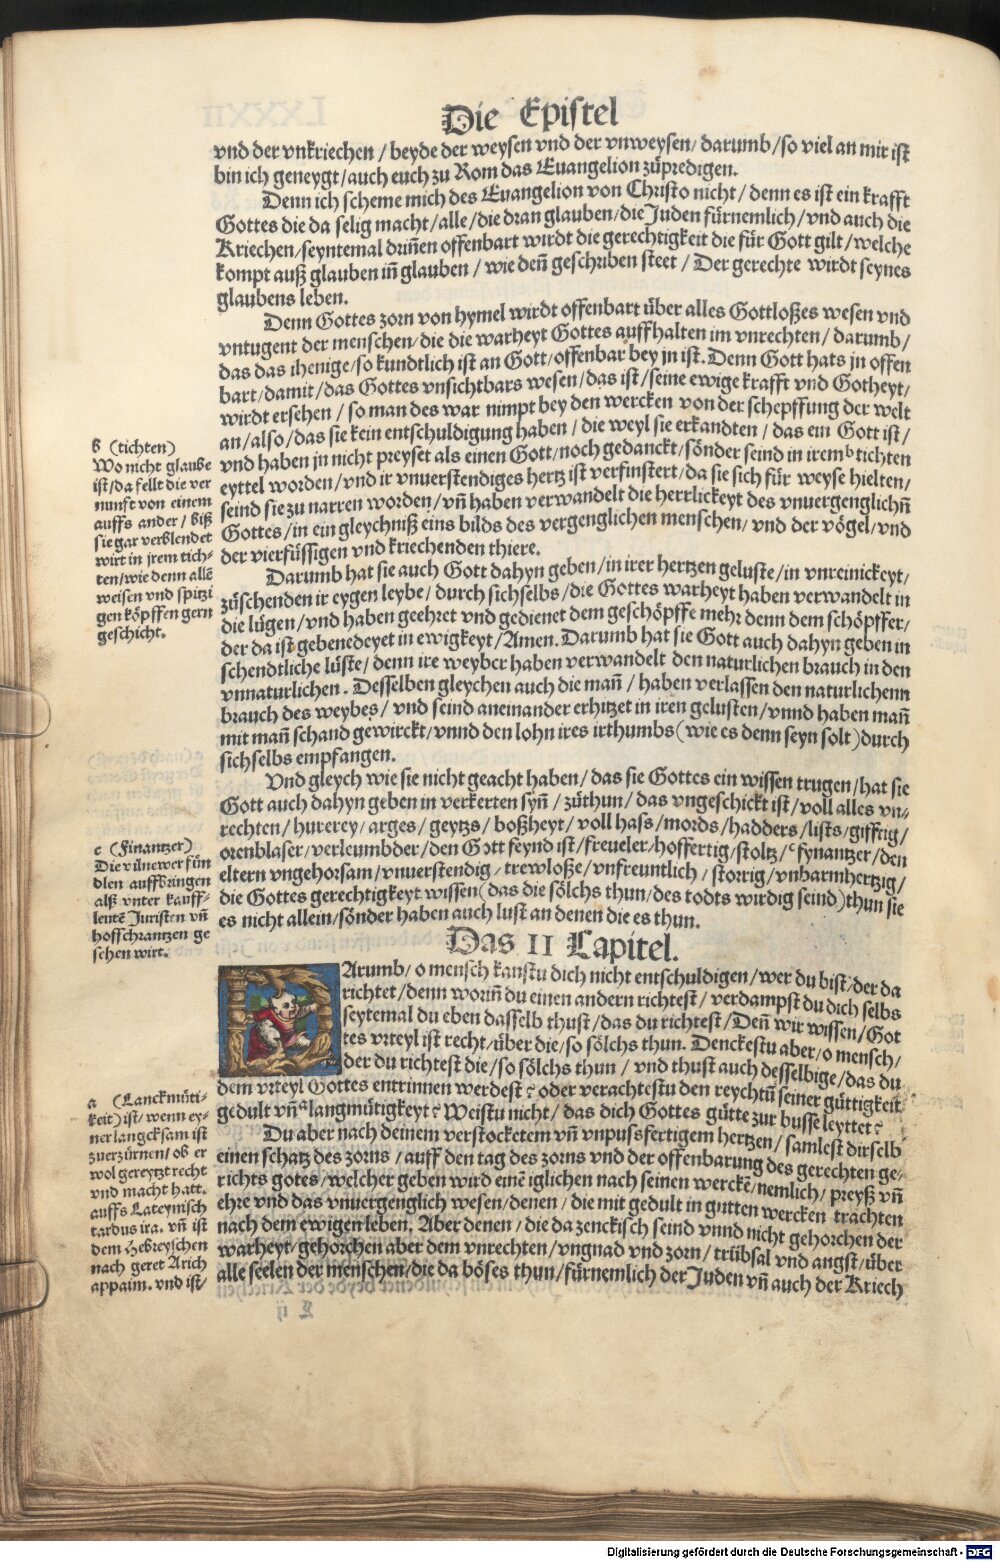 Die Epistel
vnd der vnkriechen / beyde der weysen vnd der vnweysen / darumb / so viel an mir ist
bin ich geneygt / auch euch zu Rom das Euangelion zůpredigen.
Denn ich scheme mich des Euangelion von Christo nicht / denn es ist ein krafft
Gottes die da selig macht / alle / die dran glauben / die Juden fürnemlich / vnd auch die
Kriechen / seyntemal driñen offenbart wirdt die gerechtigkeit die für Gott gilt / welche
kompt auß glauben iñ glauben / wie deñ geschriben steet / Der gerechte wirdt seynes
glaubens leben.
Denn Gottes zorn von hymel wirdt offenbart über alles Gottloßes wesen vnd
vntugent der menschen / die die warheyt Gottes auffhalten im vnrechten / darumb /
das das ihenige / so kundtlich ist an Gott / offenbar bey jn ist. Denn Gott hats jn offen
bart / damit / das Gottes vnsichtbars wesen / das ist / seine ewige krafft vnd Gotheyt /
wirdt ersehen / so man des war nimpt bey den wercken von der schepffung der welt
an / also / das sie kein entschuldigung haben / die weyl sie erkandten / das ein Gott ist /
vnd haben jn nicht preyset als einen Gott / noch gedanckt / sönder seind in irem b tichten
eyttel worden / vnd ir vnuerstendiges hertz ist verfinstert / da sie sich für weyse hielten /
seind sie zu narren worden / vñ haben verwandelt die herrlickeyt des vnuergenglichñ
Gottes / in ein gleychniß eins bilds des vergenglichen menschen / vnd der vögel / vnd
der vierfüssigen vnd kriechenden thiere.
Darumb hat sie auch Gott dahyn geben / in irer hertzen geluste / in vnreinickeyt /
zůschenden ir eygen leybe / durch sichselbs / die Gottes warheyt haben verwandelt in
die lügen / vnd haben geehret vnd gedienet dem geschöpffe mehr denn dem schöpffer /
der da ist gebenedeyet in ewigkeyt / Amen. Darumb hat sie Gott auch dahyn geben in
schendtliche lüste / denn ire weyber haben verwandelt den naturlichen brauch in den
vnnaturlichen. Desselben gleychen auch die mañ / haben verlassen den naturlichenn
brauch des weybes / vnd seind aneinander erhitzet in iren gelusten / vnnd haben mañ
mit mañ schand gewirckt / vnnd den lohn ires irthumbs (wie es denn seyn solt) durch
sichselbs empfangen.
Vnd gleych wie sie nicht geacht haben / das sie Gottes ein wissen trugen / hat sie
Gott auch dahyn geben in verkerten syñ / zůthun / das vngeschickt ist / voll alles vn-
rechten / hurerey / arges / geytzs / boßheyt / voll hass / mords / hadders / lists / gifftig /
orenblaser / verleumbder / den Gott feynd ist / freueler / hoffertig / stoltz / c fynantzer / den
eltern vngehorsam / vnuerstendig / trewloße / vnfreuntlich / storrig / vnbarmhertzig /
die Gottes gerechtigkeyt wissen (das die sölchs thun / des todts wirdig seind) thun sie
es nicht allein / sönder haben auch lust an denen die es thun.
Das II Capitel.
DArumb / o mensch kanstu dich nicht entschuldigen / wer du bist / der da
richtet / denn woriñ du einen andern richtest / verdampst du dich selbs
seytemal du eben dasselb thust / das du richtest / Deñ wir wissen / Got
tes vrteyl ist recht / über die / so sölchs thun. Denckestu aber / o mensch /
der du richtest die / so sölchs thun / vnd thust auch desselbige / das du
dem vrteyl Gottes entrinnen werdest? oder verachtestu den reychtũ seiner güttigkeit
gedult vñ a langmütigkeyt? Weistu nicht / das dich Gottes gütte zur busse leyttet?
Du aber nach deinem verstocketem vñ vnpussfertigem hertzen / samlest dirselb
einen schatz des zorns / auff den tag des zorns vnd der offenbarung des gerechten ge-
richts gotes / welcher geben wird einẽ iglichen nach seinen werckẽ / nemlich / preyß vñ
ehre vnd das vnuergenglich wesen / denen / die mit gedult in gutten wercken trachten
nach dem ewigen leben. Aber denen / die da zenckisch seind vnnd nicht gehorchen der
warheyt / gehorchen aber dem vnrechten / vngnad vnd zorn / trübsal vnd angst / über
alle seelen der menschen / die da böses thun / fürnemlich der Juden vñ auch der Kriech
b (tichten)
Wo nicht glaube
ist / da fellt die ver
nunft von einem
auffs ander / biß
sie gar verblendet
wirt in jrem tich-
ten / wie denn allẽ
weisen vnd spitzi
gen köpffen gern
geschicht.
c (Finantzer)
Die vil newer fün
dlen auffbringen
alß vnter kauff-
leutẽ Juristen vñ
hoffschrantzen ge
sehen wirt.
a (Lanckmüti-
keit) ist / wenn ey-
ner langcksam ist
zuerzürnen / ob er
wol gereytzt recht
vnd macht hatt.
auffs Lateynisch
tardus ira. vñ ist
dem Hebreyschen
nach geret Arich
appaim. vnd ist /
Digitalisierung gefördert durch die Deutsche Forschungsgemeinschaft - DFG